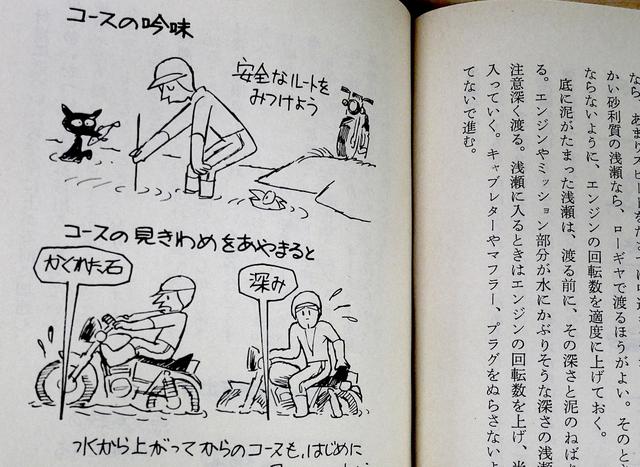 コースの吟味
安全なルートを
みつけよう
コースの見きわめをあやまると
かくれた石
深み
水から上がってからのコースも、はじめに
かい砂利質の浅瀬なら、ローギヤで渡るほうがよい。そのと
ならないように、エンジンの回転数を適度に上げておく。
底に泥がたまった浅瀬は、渡る前に、その深さと泥のねば
る。エンジンやミッション部分が水にかぶりそうな深さの浅瀬
注意深く渡る。浅瀬に入るときはエンジンの回転数を上げ、
入っていく。キャブレターやマフラー、プラグをぬらさないよ
てないで進む。